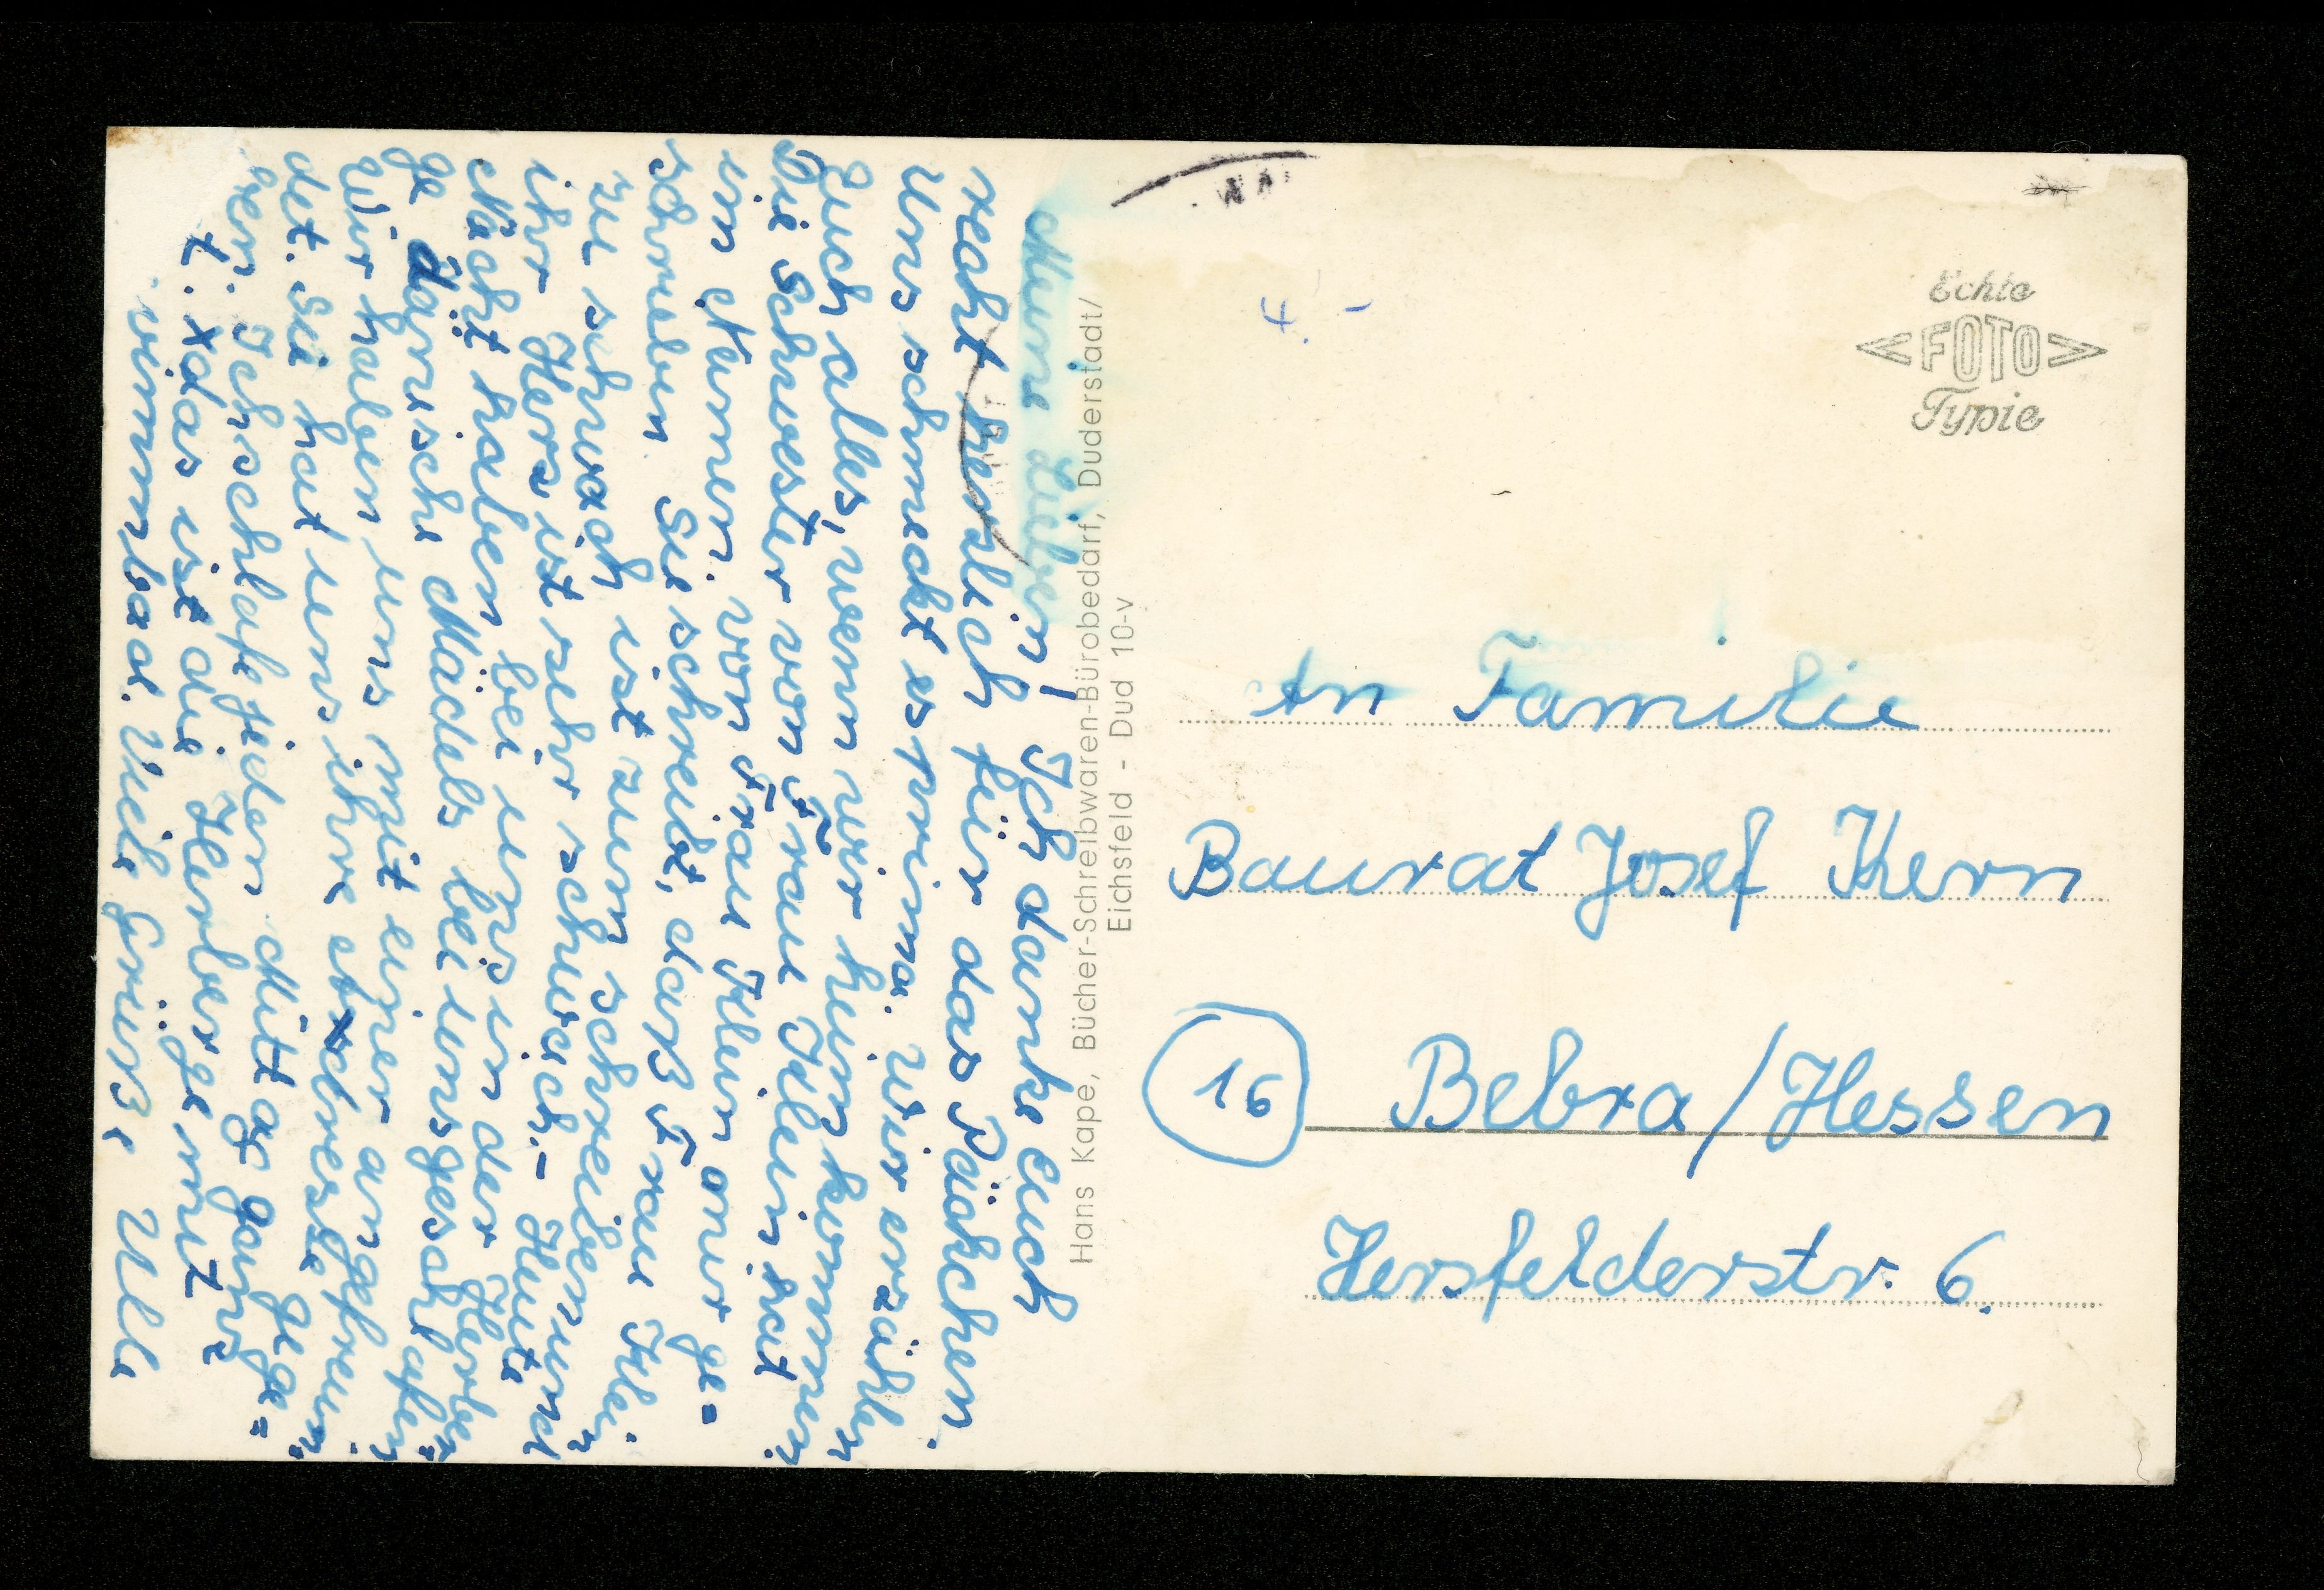 Meine Lieben! Ich danke Euch
recht herzlich für das Päckchen.
Uns schmeckt es prima. Wir erzählen
Euch alles, wenn wir heim kommen.
Die Schwester von Frau Klein hat
im Namen von Frau Klein mir ge=
schrieben. Sie schreibt, daß Frau Klein
zu schwach ist zum schreiben und
ihr Herz ist sehr schwach.- Heute
Nacht haben bei uns in der Herber=
ge dänische Mädels bei uns geschlafen.
Wir haben uns mit einer angefreun=
det. Sie hat uns ihre Adresse gege=
ben. Ich schlafe jeden Mittag ganz
f. X das ist die Herberge mit
Schwimmbad. Viele Grüße Ulla
Hans Kape, Bücher-Schreibwaren-Bürobedarf, Duderstadt/
Eichsfeld - Dud 10-v
Echte
FOTO
Typie
An Familie
Baurat Josef Kern
16 Bebra/Hessen
Hersfelderstr. 6.